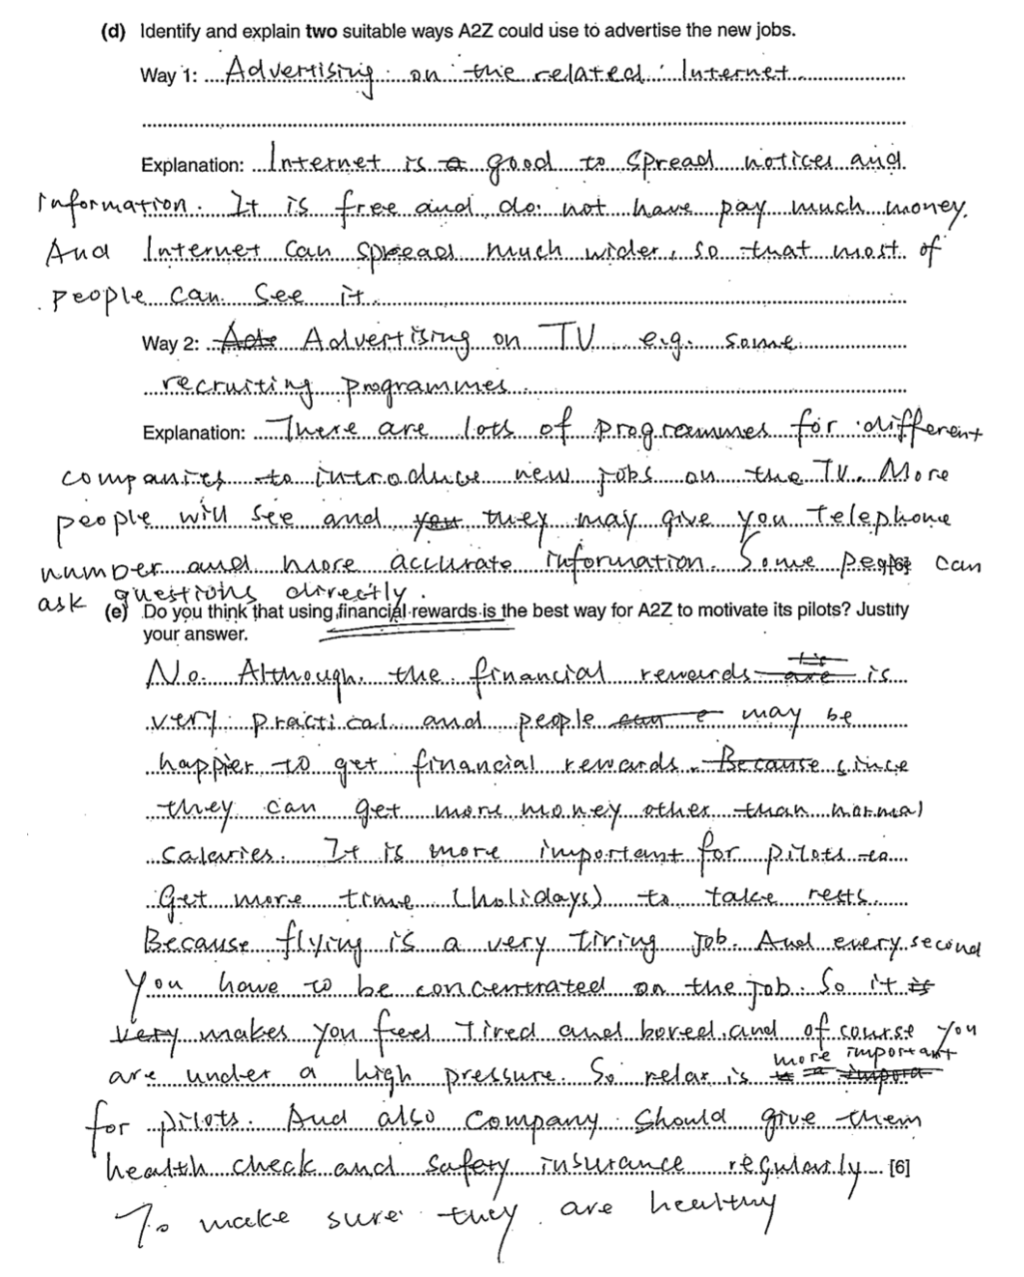 (d) Identify and explain two suitable ways A2Z could use to advertise the new jobs.
Way 1: Advertising on the related Internet
Explanation: Internet is a good to spread notices and
information. It is free and do not have pay much money.
And Internet can spread much wider, so that most of
people can see it.
Way 2: Ads Advertising on TV e.g. some
recruiting programmes
Explanation: There are lots of programmes for different
companies to introduce new jobs on the TV. More
people will see and you they may give you telephone
number and more accurate information. Some people can
ask questions directly.
(e) Do you think that using financial rewards is the best way for A2Z to motivate its pilots? Justify
your answer.
No. Although the financial rewards are is
very practical and people can may be
happier to get financial rewards. Because since
they can get more money other than normal
salaries. It is more important for pilots to
get more time (holidays) to take rests.
Because flying is a very tiring job. And every second
you have to be concentrated on the job. So it is
very makes you feel tired and bored and of course you
are under a high pressure. So relax is more important
for pilots. And also company should give them
health check and safety insurance regularly [6]
To make sure they are healthy